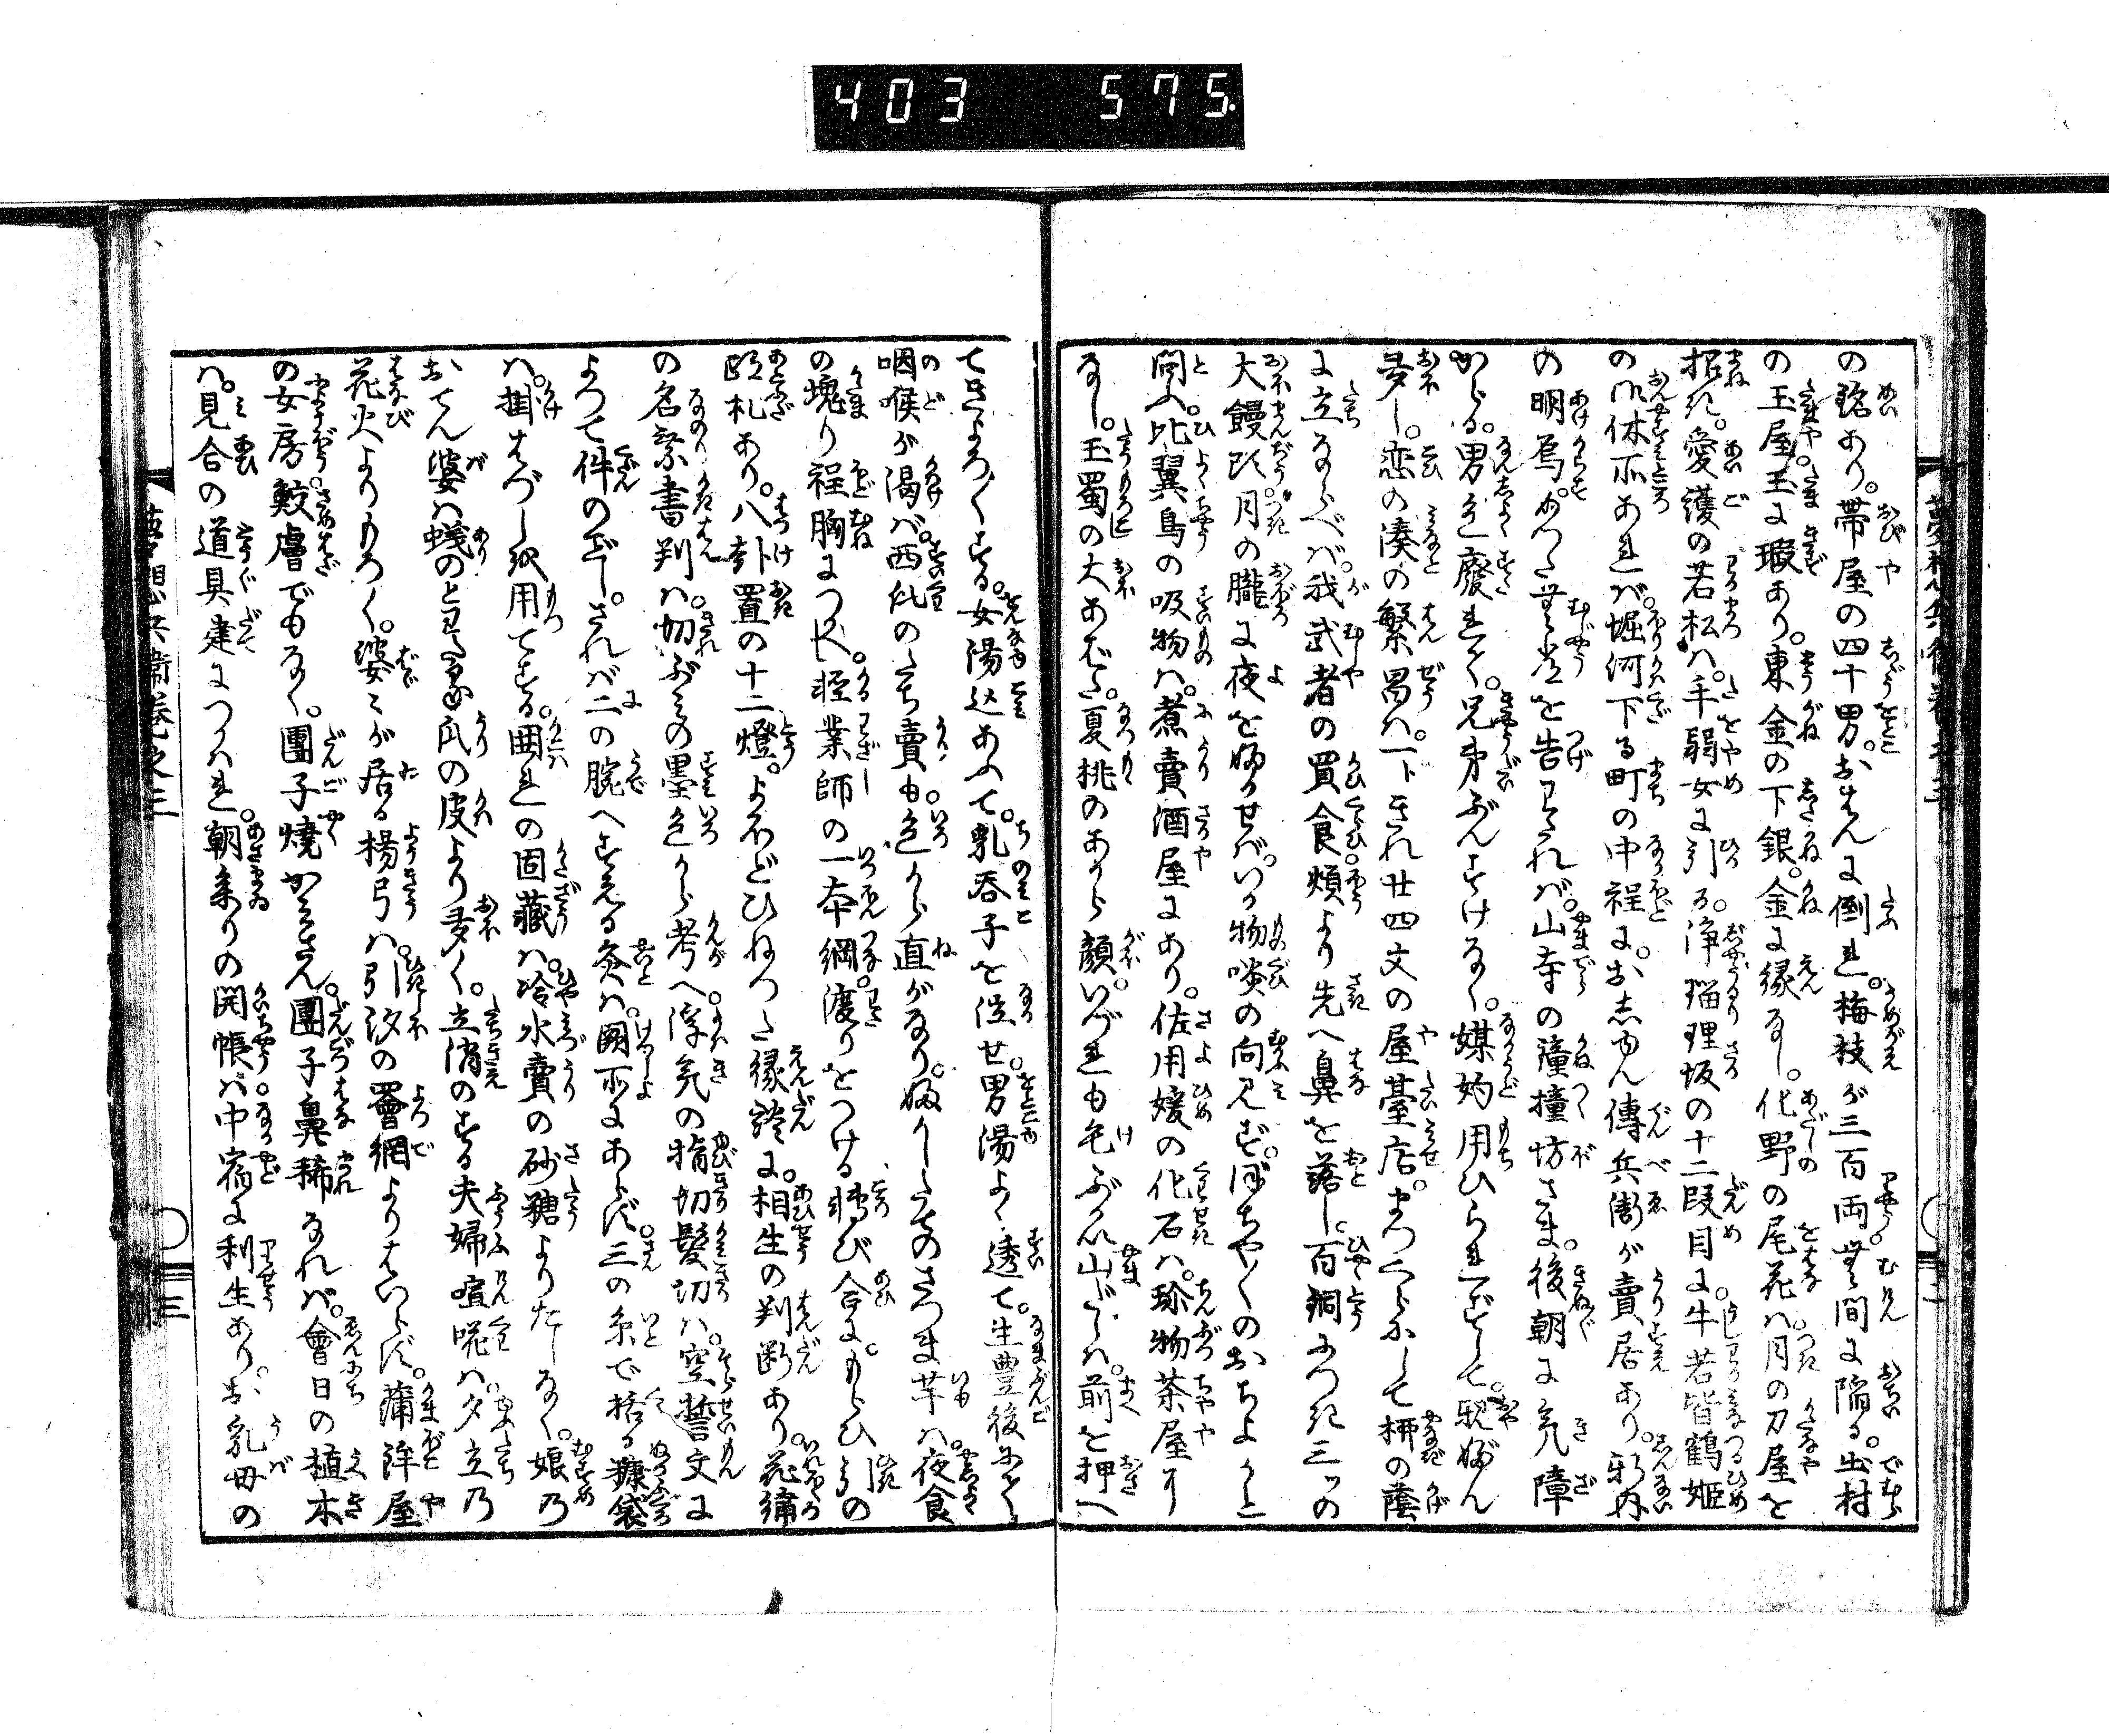 403 575
の銘あり。帯屋の四十男。おはんに倒れ。梅枝が三百両無間に陥る。出村
の玉屋玉に瑕あり。東金の下銀。金に縁なし。化野の尾花は。月の刀屋を
招き。愛護の若松は。手弱女に引る。浄瑠理坂の十二段目に。牛若皆鶴姫
の御休所あれば。堀河下る町の中程に。おしゆん傳兵衛が賣居あり。新内
の明烏かつた無常を告わたれば。山寺の鐘撞坊さま。後朝に気障
がる。男色廃れて。兄弟ぶんすけなく。媒妁用ひられずして。親ぶん
多し。恋の湊の繁昌は。一トきれ廿四文の屋臺店。まつくらにして柳の蔭
に立ならべば。我武者の買食頬より先へ鼻を落し。百銅につき三ツの
大饅頭月の朧に夜を師うせば。いか物喰の向見ず。ぽちやくのおちよかと
問ふ。比翼鳥の吸物は。煮賣酒屋にあり。佐用媛の化石は。珍物茶屋に
なし。玉蜀の大あばた。夏桃のあから顔。いづれも毛ぶかい山だしは。前を押へ
てきよろくする。女湯込あふて。乳呑子を泣せ。男湯よく透て。生豊後にぎ
咽喉が渇ば。西瓜のたち賣も。色から直がなり。ふかしたてのさつま芋は。夜食
の塊り程胸につかへ。軽業師の一本綱。渡りをつける轉び合に。もらひ引の
跡札あり。八卦置の十二燈。よほどひねつた縁談に。相生の判断あり。花繍
の名繋書判は。切ぶみの墨色から考へ。浮気の指切髪切は。空誓文に
よつて件のごとし。されば二の腕へすえる灸は。関所にあらず。三の糸で括る糠袋
は。掛はづし紙用てする。囲れの固蔵は。冷水賣の砂糖よりたしなく。娘乃
おてん婆は蟻のとわたる瓜の皮より多く。立消のする夫婦喧嘩は。夕立乃
花火よりもろく。婆々が居る楊弓は。引汐の四手網よりはいらず。蒲鉾屋
の女房。鮫膚でもなく。團子焼かみさん。團子鼻稀なれば。會日の植木
は。見合の道具建につかはれ。朝参りの開帳は中宿に利生あり。お乳母の
夢想兵衛巻之三
三